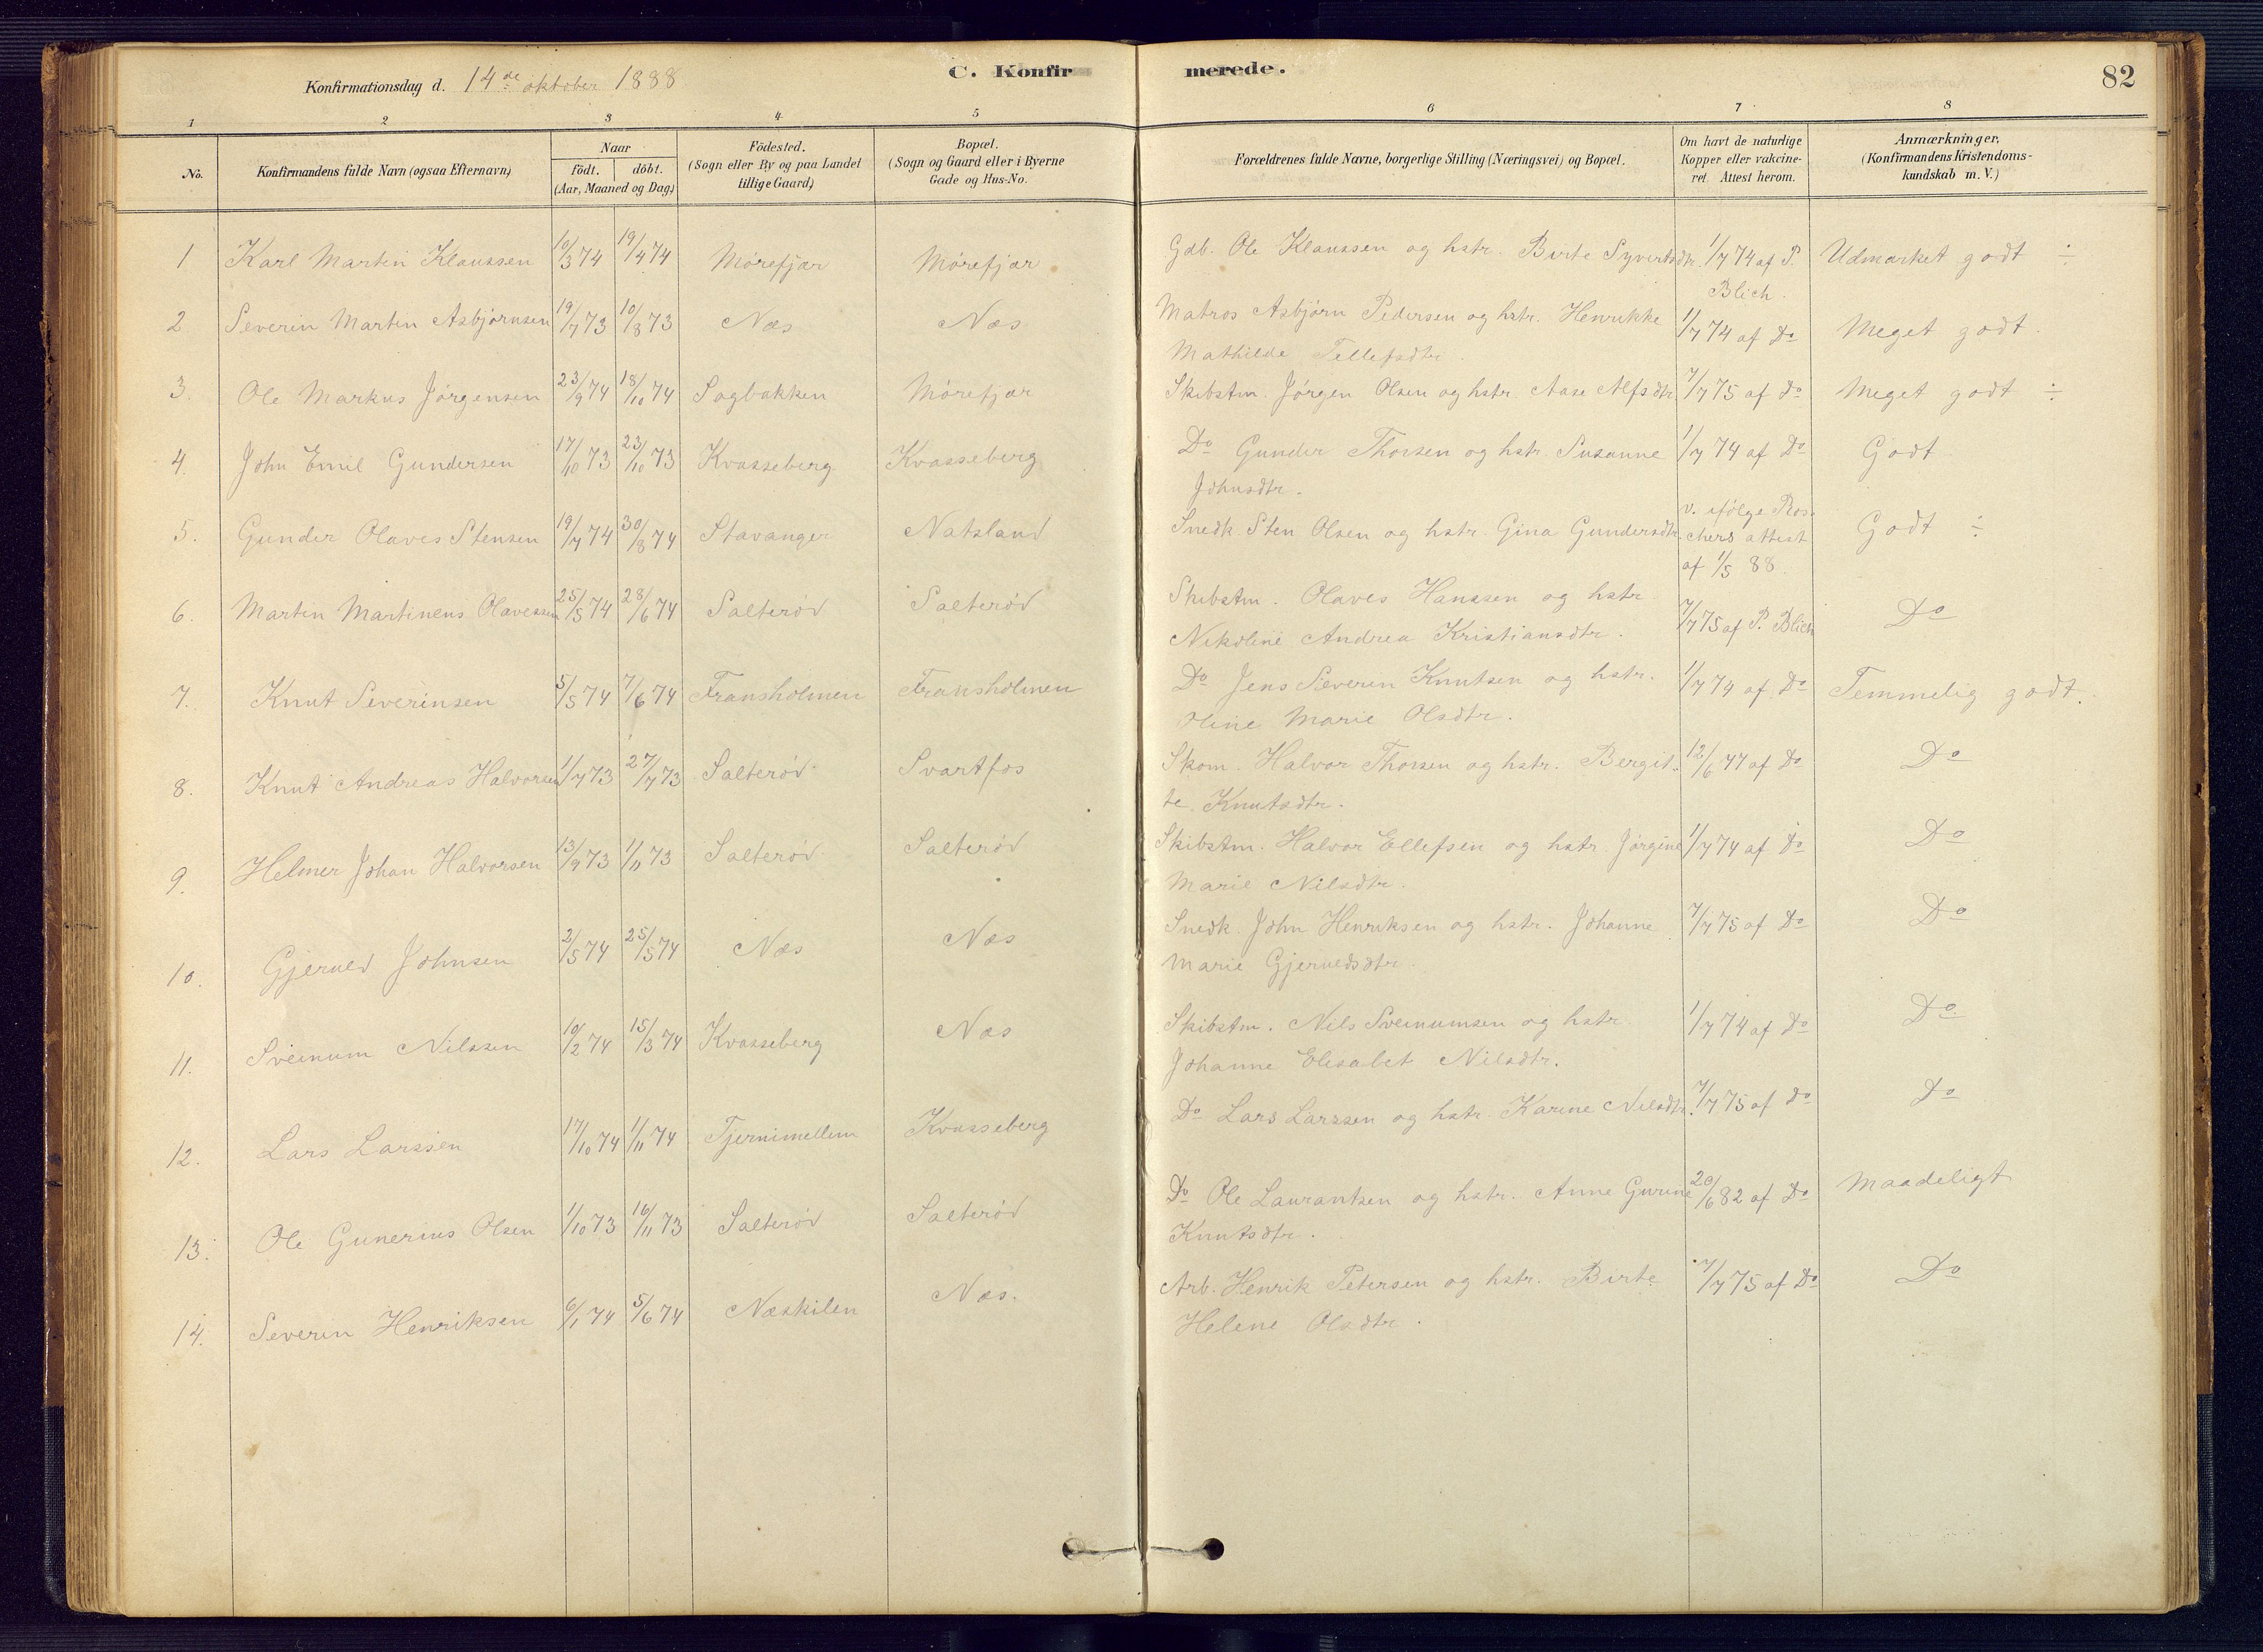 Konfirmationsdag d. 14de oktober 1888
C. Konfirmerede.
82
1 2 3 4 5 6 7 8
No.
Konfirmandens fulde Navn (ogsaa Efternavn)
Naar
födt. döbt.
(Aar, Maaned og Dag)
Födested.
(Sogn eller By og paa Landet
tillige Gaard)
Bopæl.
(Sogn og Gaard eller i Byerne
Gade og Hus-No.
Forældrenes fulde Navne, borgerlige Stilling (Næringsvei) og Bopæl.
Om havt de naturlige
Kopper eller vakcine-
ret. Attest herom.
Anmærkninger.
(Konfirmandens Kristendoms-
kundskab m. V.)
1 Karl Martin Klaussen 10/3 74 19/4 74 Mörefjær Mörefjær Gdb. Ole Klaussen og hstr. Birte Syvertsdtr. 1/7 74 af P. Udmærket godt ÷
Blich.
2. Severin Martin Asbjørnsen 19/7 73 10/8 73 Næs Næs Matros Asbjørn Pedersen og hstr. Henrikke 1/7 74 af Do Meget godt.
Mathilde Tellefsdtr.
3. Ole Markus Jørgensen 23/9 74 18/10 74 Sagbakken Mörefjær Skibstm. Jørgen Olsen og hstr. Aase Alfsdtr. 7/7 75 af Do Meget godt ÷
4. John Emil Gundersen 17/10 73 23/10 73 Kvasseberg Kvasseberg Do Gunder Thorsen og hstr. Susanne 1/7 74 af Do Godt
Johnsdtr.
5. Gunder Olaves Stensen 19/7 74 30/8 74 Stavanger Natsland Snedk. Sten Olsen og hstr. Gina Gundersdtr. v. ifølge Ros- Godt ÷
chers attest
af 1/5 88.
6. Martin Martinens Olavessen 25/5 74 28/6 74 Salterød Salterød Skibstm. Olaves Hanssen og hstr. 7/7 75 af P. Blich Do
Nikoline Andrea Kristiansdtr.
7. Knut Severinsen 5/5 74 7/6 74 Fransholmen Fransholmen Do Jens Severin Knutsen og hstr. 1/7 74 af Do Temmelig godt.
Oline Marie Olsdtr.
8. Knut Andreas Halvorsen 1/7 73 27/7 73 Salterød Svartfos Skom. Halvor Thorsen og hstr. Bergit- 12/6 77 af Do Do
te Knutsdtr.
9. Helmer Johan Halvorsen 13/9 73 1/11 73 Salterød Salterød Skibstm. Halvor Ellefsen og hstr. Jørgine 1/7 74 af Do Do
Marie Nilsdtr.
10. Gjerued Johnsen 2/5 74 25/5 74 Næs Næs Snedk. John Henriksen og hstr. Johanne 7/7 75 af Do Do
Marie Gjeruedsdtr.
11. Sveinum Nilssen 10/2 74 15/3 74 Kvasseberg Næs Skibstm. Nils Sveinumsen og hstr. 1/7 74 af Do Do
Johanne Elisabet Nilsdtr.
12. Lars Larssen 17/10 74 1/11 74 Tjernimellem Kvasseberg Do Lars Larssen og hstr. Karine Nilsdtr. 7/7 75 af Do Do
13. Ole Gunerius Olsen 1/10 73 16/11 73 Salterød Salterød Do Ole Laurantsen og hstr. Anne Gurine 20/6 82 af Do Maadeligt
Knutsdtr.
14. Severin Henriksen 6/1 74 5/6 74 Næskilen Næs. Arb. Henrik Petersen og hstr. Birte 7/7 75 af Do Do
Helene Olsdtr.